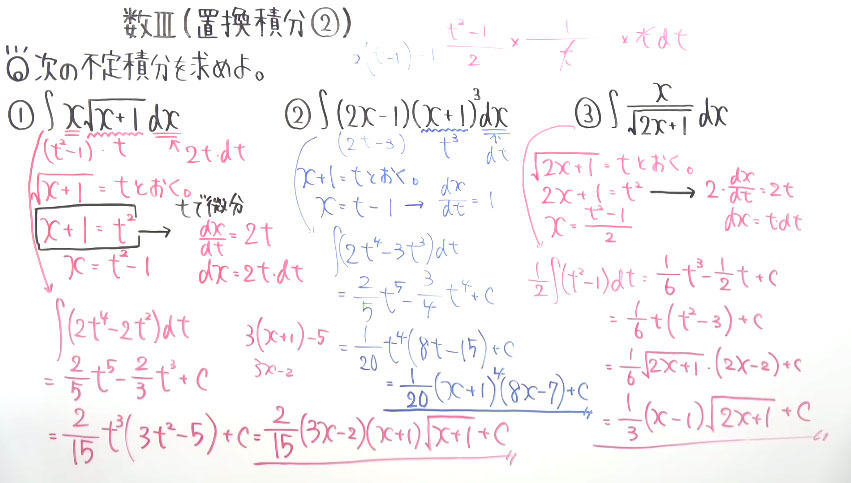 数Ⅲ(置換積分②)
2(t-1)-1
t²-1/2 × 1/t × t dt
◎次の不定積分を求めよ。
① ∫x√(x+1) dx
(t²-1)・t 2t・dt
√(x+1) = tとおく。
x+1=t² → tで微分 dx/dt = 2t
x=t²-1 dx=2t・dt
∫(2t⁴-2t²)dt
= 2/5 t⁵ - 2/3 t³ + C
= 2/15 t³(3t²-5)+C = 2/15 (3x-2)(x+1)√(x+1) + C
3(x+1)-5
3x-2
② ∫(2x-1)(x+1)³dx
(2t-3) t³ dt
x+1=tとおく。
x=t-1 → dx/dt = 1
∫(2t⁴-3t³)dt
= 2/5 t⁵ - 3/4 t⁴ + C
= 1/20 t⁴(8t-15)+C
= 1/20 (x+1)⁴(8x-7)+C
③ ∫ x/√(2x+1) dx
√(2x+1) = tとおく。
2x+1=t² → 2・dx/dt = 2t
x = t²-1/2 dx=t・dt
1/2 ∫(t²-1)dt = 1/6 t³ - 1/2 t + C
= 1/6 t(t²-3)+C
= 1/6 √(2x+1)・(2x-2)+C
= 1/3 (x-1)√(2x+1) + C